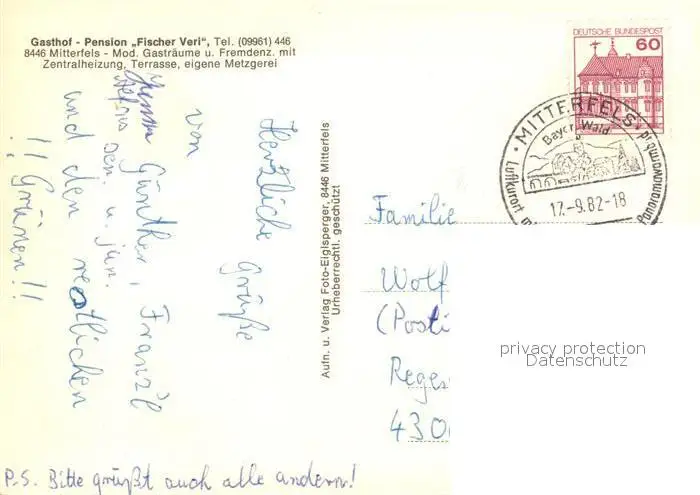 Gasthof - Pension „Fischer Veri“, Tel. (09961) 446
8446 Mitterfels - Mod. Gasträume u. Fremdenz. mit
Zentralheizung, Terrasse, eigene Metzgerei
Herzliche Grüße
von
Günther, Franz'l
sen. u. jun.
und den restlichen
!! Grünen!!
P.S. Bitte grüßt auch alle andern!
Aufn. u. Verlag Foto-Eiglsperger, 8446 Mitterfels
Urheberrechtl. geschützt!
DEUTSCHE BUNDESPOST
60
MITTERFELS
Bayer. Wald
Luftkurort
Panorama
17.-9.82-18
Familie
Wolf
(Posti
Reges
430
privacy protection
Datenschutz